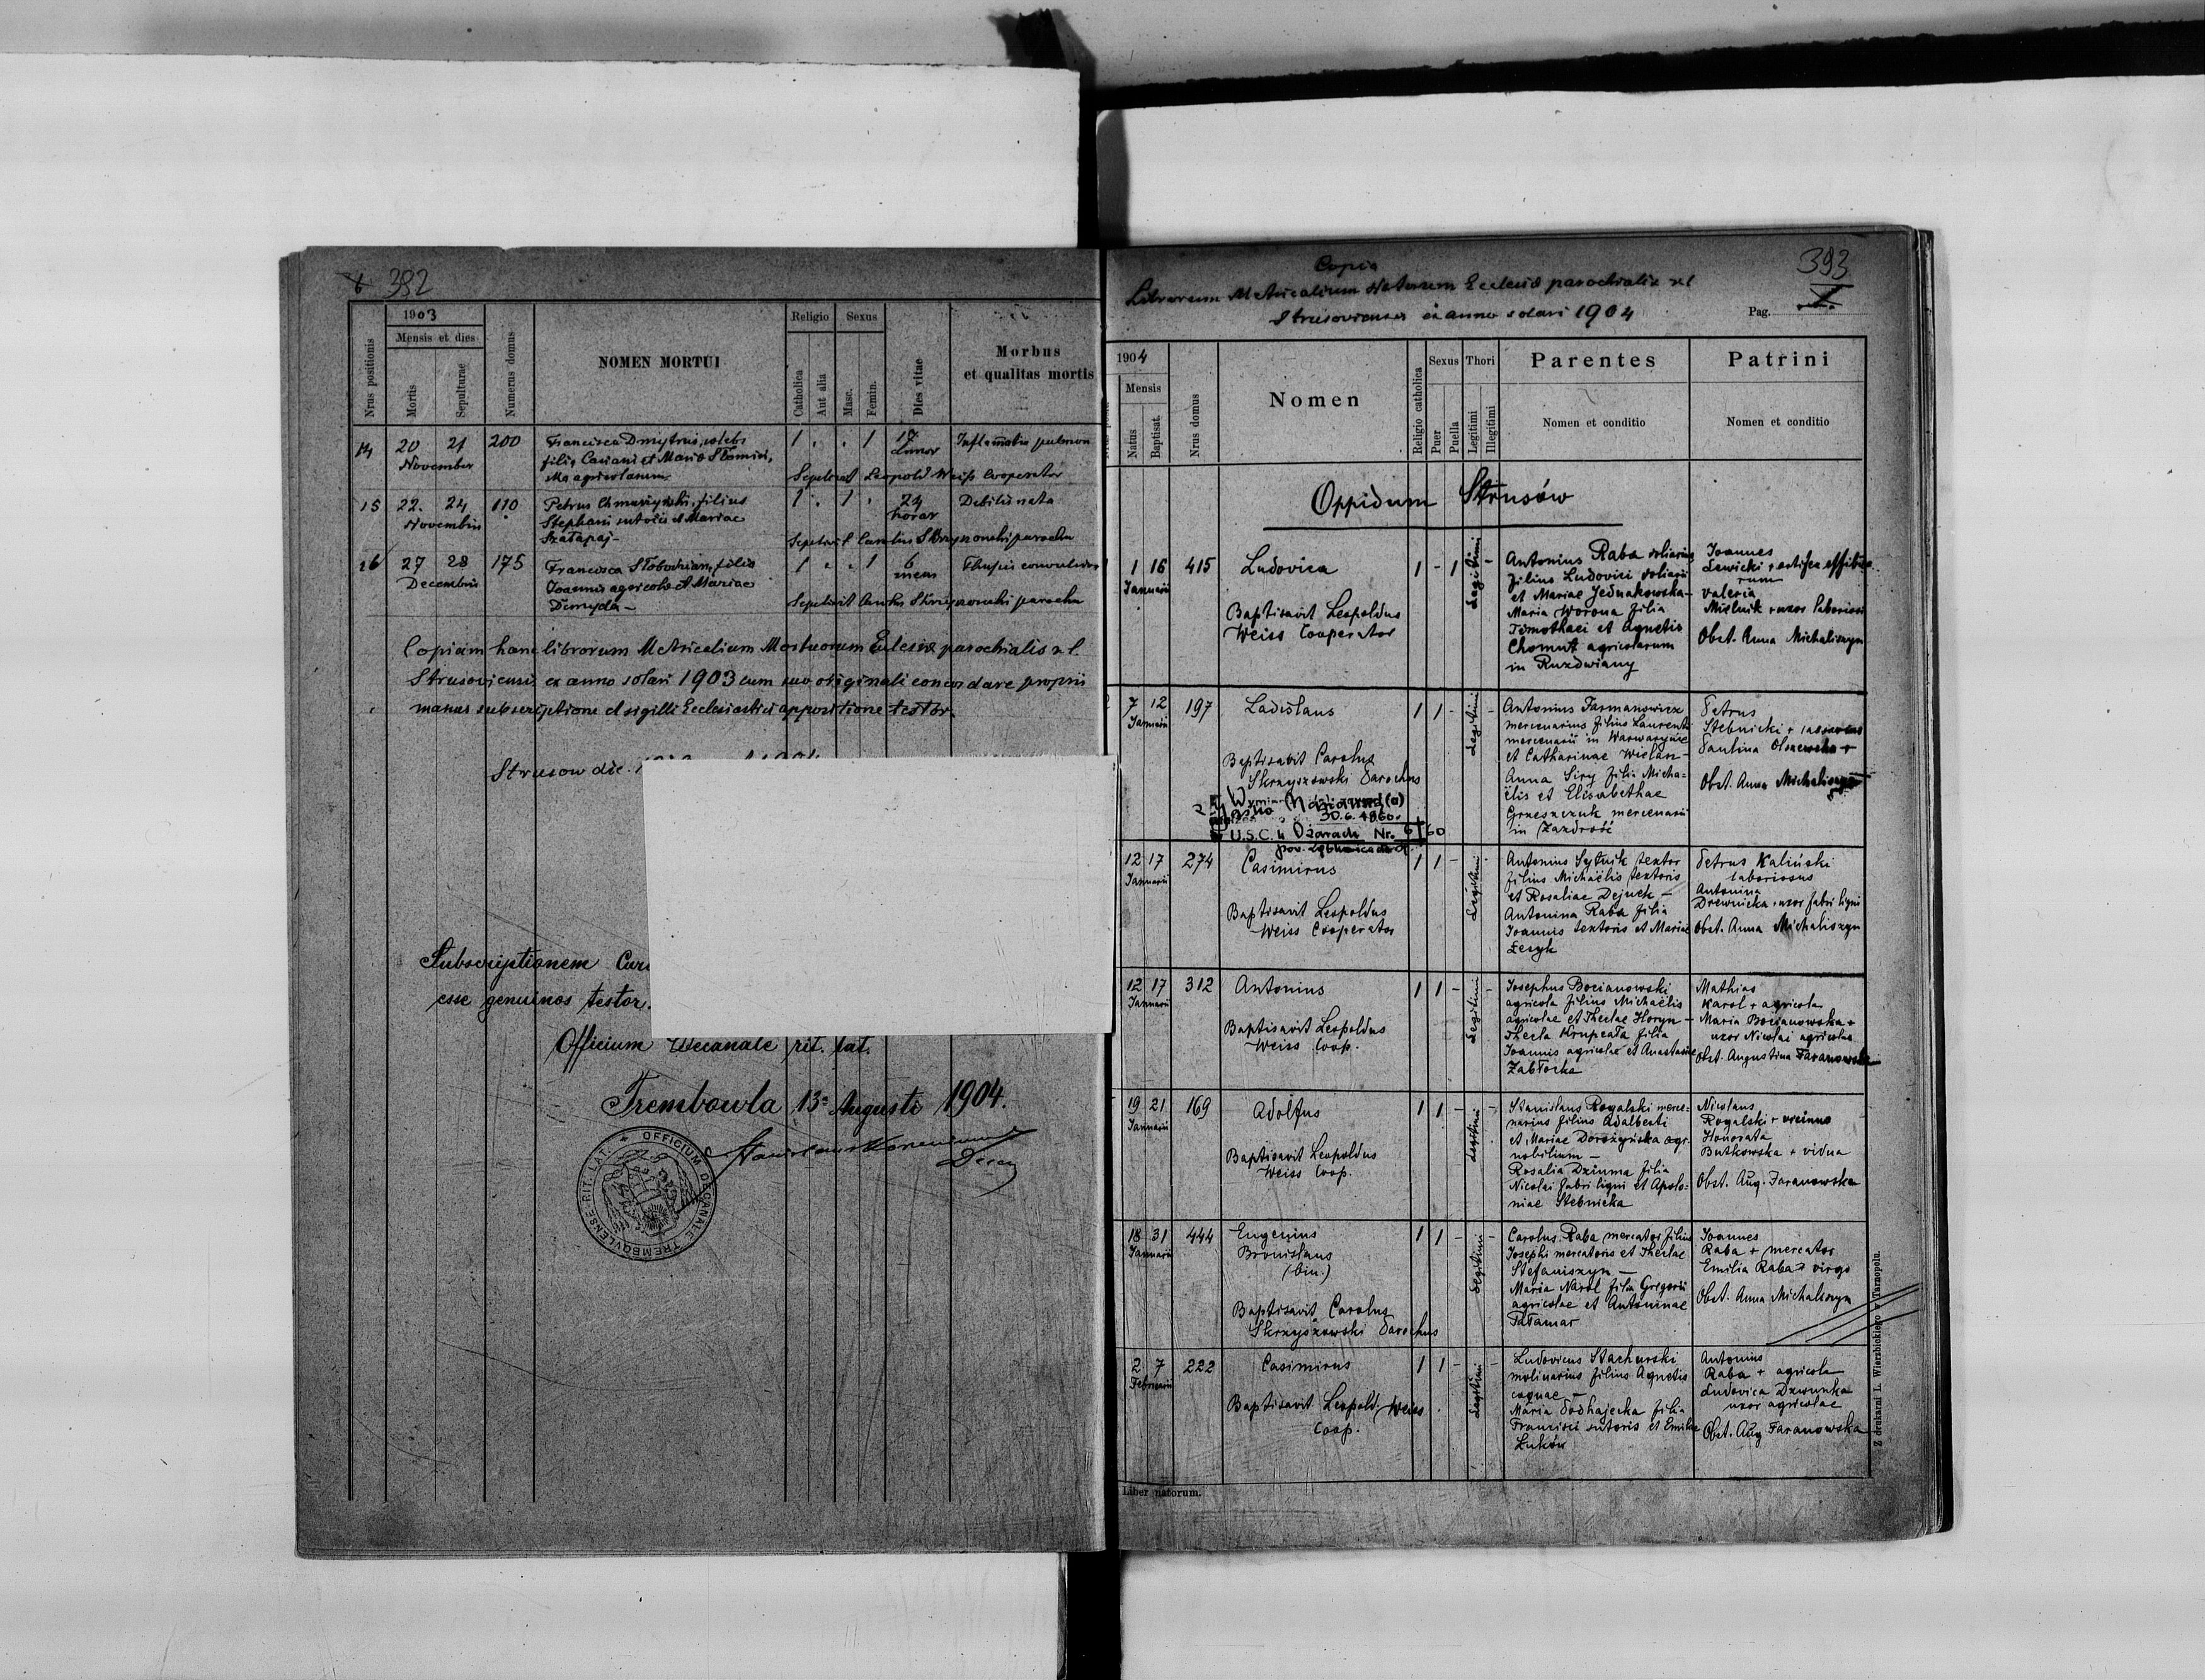 382
1903
Mensis et dies
Nrus positionis
Mortis
Sepulturae
Numerus domus
NOMEN MORTUI
Religio
Catholica
Aut alia
Sexus
Masc.
Femin.
Dies vitae
Morbus
et qualitas mortis
14 20 21 200 Francisca Dmytrus, coelebs 1 . . 1 17
November
Sepelivit Leopold Weiss Cooperator
15 22. 24 110 Petrus filius 1 . 1 . 24 Debilis nata
Novembris Stephani sutoris et Mariae horar
Szałapaj -
Sepelivit Carolus Skrzyszowski parochu
16 27 28 175 Francisca filia 1 . . 1 6
Decembris Joannis agricolae et Mariae mens
Sepelivit Skrzyszowski parochu
Copiam hanc librorum Metricalium Mortuorum Ecclesiae parochialis r. l.
Strusoviensis ex anno solari 1903 cum suo originali concordare proprii
manus subscriptione et sigilli Ecclesiastici appositione testor.
Strusow die
Subscriptionem
esse genuinos testor.
Officium Decanale rit. lat.
Trembowla 13a Augusti 1904.
Decan
OFFICIUM DECANALE TREMBOVLENSE RIT. LAT.
393
Copia
Librorum Metricalium Natorum Ecclesiae parochialis r. l.
Strusoviensis ex anno solari 1904
Pag. I
1904
Mensis
Natus
Baptisat.
Nrus domus
Nomen
Religio catholica
Sexus
Puer
Puella
Thori
Legitimi
Illegitimi
Parentes
Nomen et conditio
Patrini
Nomen et conditio
Oppidum Strusów
1 16 415 Ludovica 1 - 1 Legitimi -
Januarii
Baptisavit Leopoldus
Weiss Cooperator
Antonius Raba doliarius
filius Ludovici doliarii
et Mariae Jednakowska -
Maria Worona filia
Timothaei et Agnetis
Chomut agricolarum
in Ruzdwiany
Joannes
Lewicki +
Valeria
Mielnik + uxor laboriosi
Obst. Anna Michaliszyn
7 12 197 Ladislaus 1 1 - Legitimi -
Januarii
Baptisavit Carolus
Skrzyszowski Parochus
30.6.1960.
U.S.C. w Ożarach Nr. 6/60
Antonius Farmanowicz
mercenarius filius Laurentii
mercenarii in Warwaryńce
et Catharinae Wielan -
Anna Siry filia Micha=
ëlis et Elisabethae
Grzeszczuk mercenarii
in Zazdrość
Petrus
Stebnicki +
Paulina Olszewska +
Obst. Anna Michaliszyn
12 17 274 Casimirus 1 1 - Legitimi -
Januarii
Baptisavit Leopoldus
Weiss Cooperator
Antonius Sytnik textor
filius Michaëlis textoris
et Rosaliae Dejnek -
Antonina Raba filia
Joannis textoris et Mariae
Łesyk
Petrus Kaliński
laboriosus
Antonina
Drewnicka + uxor fabri ligni
Obst. Anna Michaliszyn
12 17 312 Antonius 1 1 - Legitimi -
Januarii
Baptisavit Leopoldus
Weiss Coop.
Josephus Bocianowski
agricola filius Michaëlis
agricolae et Theclae Horyn -
Thecla Krupczta filia
Joannis agricolae et Anastasiae
Zabłocka
Mathias
Karol + agricola
Maria Bocianowska +
uxor Nicolai agricolae
Obst. Augustina Faranowska
19 21 169 Adolfus 1 1 - Legitimi -
Januarii
Baptisavit Leopoldus
Weiss Coop.
Stanislaus Rogalski merce=
narius filius Adalberti
et Mariae Dorożyńska agr.
nobilium -
Rosalia Dziuma filia
Nicolai fabri ligni et Apolo=
niae Stebnicka
Nicolaus
Rogalski + vicinus
Honorata
Butkowska + vidua
Obst. Aug. Faranowska
18 31 444 Eugenius 1 1 - Legitimi -
Januarii Bronislaus
(bin.)
Baptisavit Carolus
Skrzyszowski Parochus
Carolus Raba mercator filius
Josephi mercatoris et Theclae
Stefaniszyn -
Maria Karol filia Gregorii
agricolae et Antoninae
Tatamar
Joannes
Raba + mercator
Emilia Raba + virgo
Obst. Anna Michaliszyn
2 7 222 Casimirus 1 1 - Legitimi -
Februarii
Baptisavit Leopold. Weiss
Coop.
Ludovicus Stachurski
molinarius filius Agnetis
Maria Podhajecka filia
Francisci sutoris et Emiliae
Łuków
Antonius
Raba + agricola
Ludovica Dziunka
uxor agricolae
Obst. Aug Faranowska
Liber natorum.
Z drukarni L. Wierzbickiego w Tarnopolu.